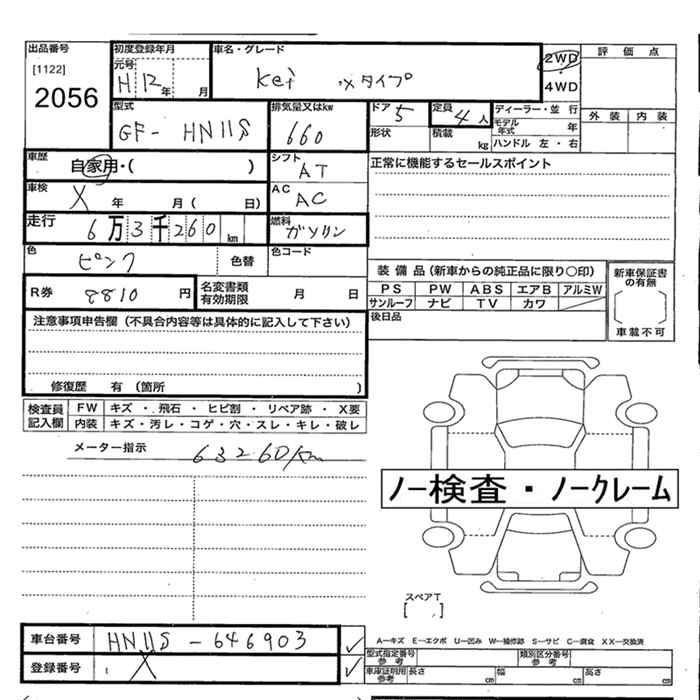 出品番号
[1122]
2056
初度登録年月
元号
H 12年 月
車名・グレード
Kei Xタイプ
2WD
4WD
評価点
外装 内装
型式
GF- HN11S
排気量又はkw
660
ドア 5
形状
定員 4人
積載 kg
ディーラー・並行
モデル年式 年
ハンドル 左・右
車歴
自家用・( )
シフト
AT
正常に機能するセールスポイント
車検
X 年 月( 日)
AC
AC
走行
6万3千260km
燃料
ガソリン
色
ピンク
色替
色コード
装備品(新車からの純正品に限り○印)
PS PW ABS エアB アルミW
サンルーフ ナビ TV カワ
後日品
新車保証書の有無
車載不可
R券 8810円
名変書類有効期限 月 日
注意事項申告欄(不具合内容等は具体的に記入して下さい)
修復歴 有(箇所 )
検査員記入欄
FW キズ・飛石・ヒビ割・リペア跡・X要
内装 キズ・汚レ・コゲ・穴・スレ・キレ・破レ
メーター指示 63260km
ノー検査・ノークレーム
スペアT
[ ]
車台番号 HN11S-646903 ✓
登録番号 X ✓
A―キズ E―エクボ U―凹み W―補修跡 S―サビ C―腐食 XX―交換済
型式指定番号 参考
類別区分番号 参考
車庫証明用 参考 長さ cm 幅 cm 高さ cm